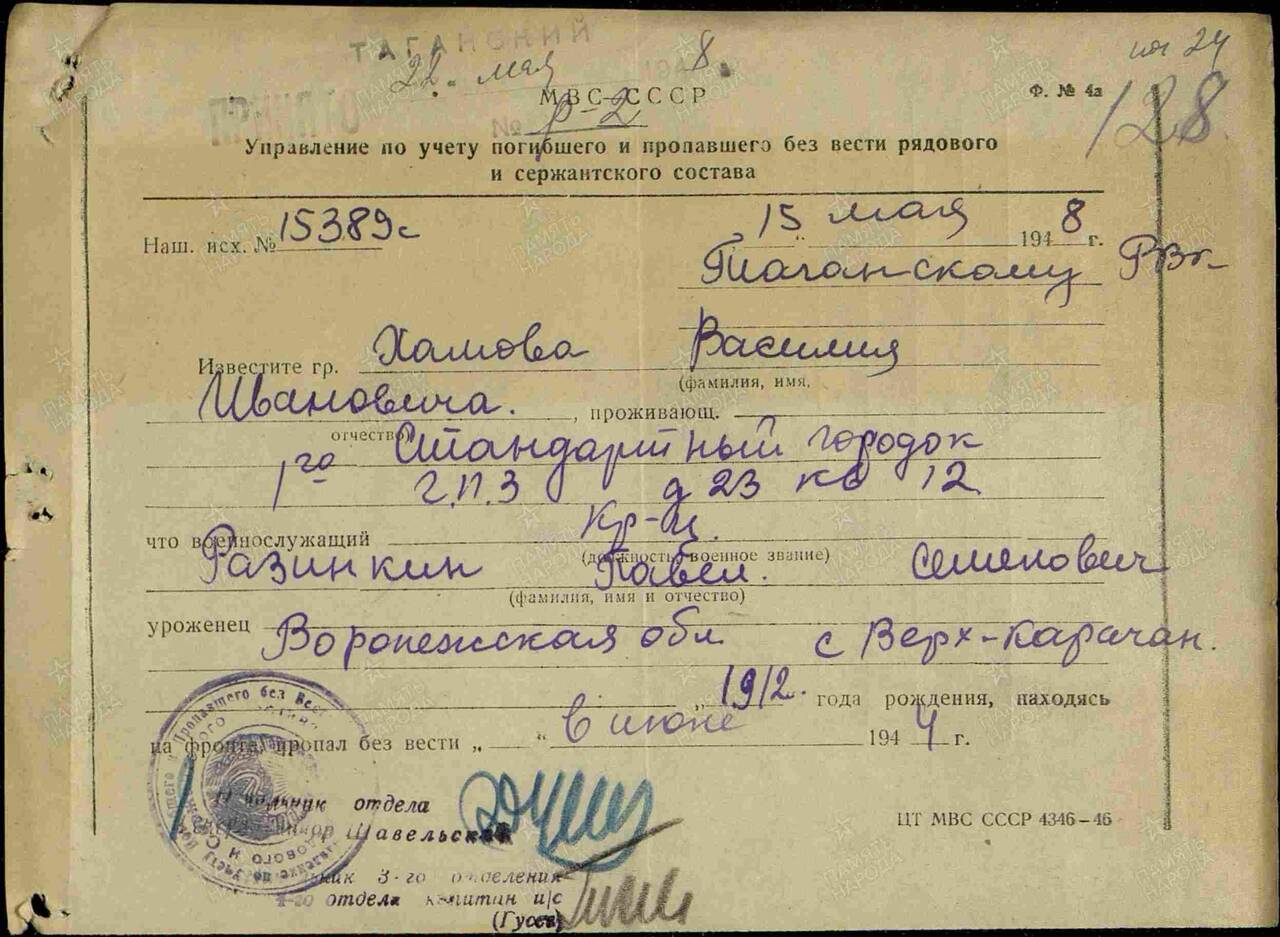 ТАГАНСКИЙ
22. мая 1948
по 24
МВС СССР
Ф. № 4а
128
ПРИНЯТО
№ р-2
Управление по учету погибшего и пропавшего без вести рядового
и сержантского состава
Наш. исх. № 15389с
„15" мая 1948 г.
Таганскому РВк
Известите гр. Хамова Василия
(фамилия, имя,
Ивановича. , проживающ.
отчество)
Стандартный городок
1го Г.П.З д 23 кв 12
что военнослужащий кр-ц.
(должность, военное звание)
Разинкин Павел. Семенович
(фамилия, имя и отчество)
уроженец Воронежская обл с Верх-Карачан.
1912. года рождения, находясь
на фронте, пропал без вести „ " в июне 1944 г.
Начальник отдела
генерал-майор Шавельский
ЦТ МВС СССР 4346—46
3-го отделения
4-го отдела капитан и/с
(Гусев)